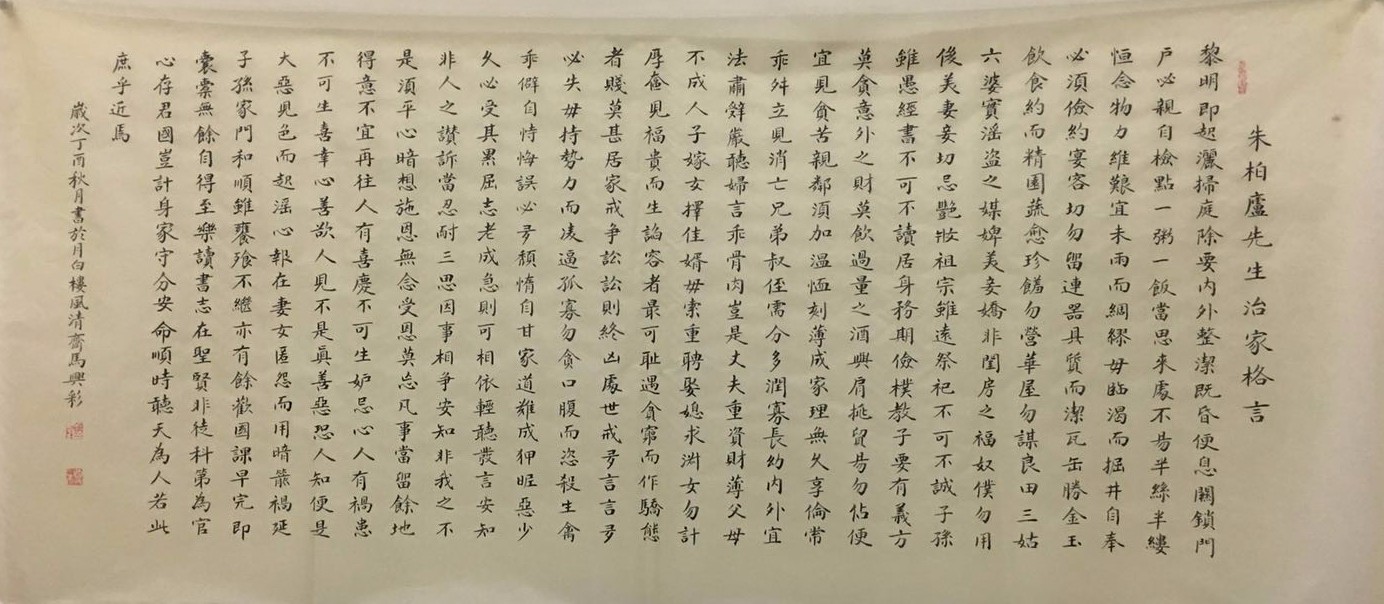 朱柏廬先生治家格言
黎明即起灑掃庭除要内外整潔既昏便息關鎖門
户必親自檢點一粥一飯當思來處不易半絲半縷
恒念物力維艱宜未雨而綢繆毋臨渴而掘井自奉
必須儉約宴客切勿留連器具質而潔瓦缶勝金玉
飲食約而精園蔬愈珍饈勿營華屋勿謀良田三姑
六婆實滛盜之媒婢美妾嬌非閨房之福奴僕勿用
後美妻妾切忌艷妝祖宗雖遠祭祀不可不誠子孫
雖愚經書不可不讀居身務期儉樸教子要有義方
莫貪意外之財莫飲過量之酒與肩挑貿易勿佔便
宜見貪苦親鄰須加溫恤刻薄成家理無久享倫常
乖舛立見消亡兄弟叔侄需分多潤寡長幼内外宜
法肅辭嚴聽婦言乖骨肉豈是丈夫重資財薄父母
不成人子嫁女擇佳婿毋索重聘娶媳求淑女勿計
厚奩見福貴而生諂容者最可恥遇貪窮而作驕態
者賤莫甚居家戒争訟訟則終凶處世戒多言言多
必失毋恃勢力而凌逼孤寡勿貪口腹而恣殺生禽
乖僻自恃悔誤必多頹惰自甘家道難成狎昵惡少
久必受其累屈志老成急則可相依輕聽發言安知
非人之譖訴當忍耐三思因事相争安知非我之不
是須平心暗想施恩無念受恩莫忘凡事當留餘地
得意不宜再往人有喜慶不可生妒忌心人有禍患
不可生喜幸心善欲人見不是真善惡恐人知便是
大惡見色而起滛心報在妻女匿怨而用暗箭禍延
子孫家門和順雖饔飱不繼亦有餘歡國課早完即
囊橐無餘自得至樂讀書志在聖賢非徒科第為官
心存君國豈計身家守分安命順時聽天為人若此
庶乎近焉
歲次丁酉秋月書於月白樓風清齋馬興彩